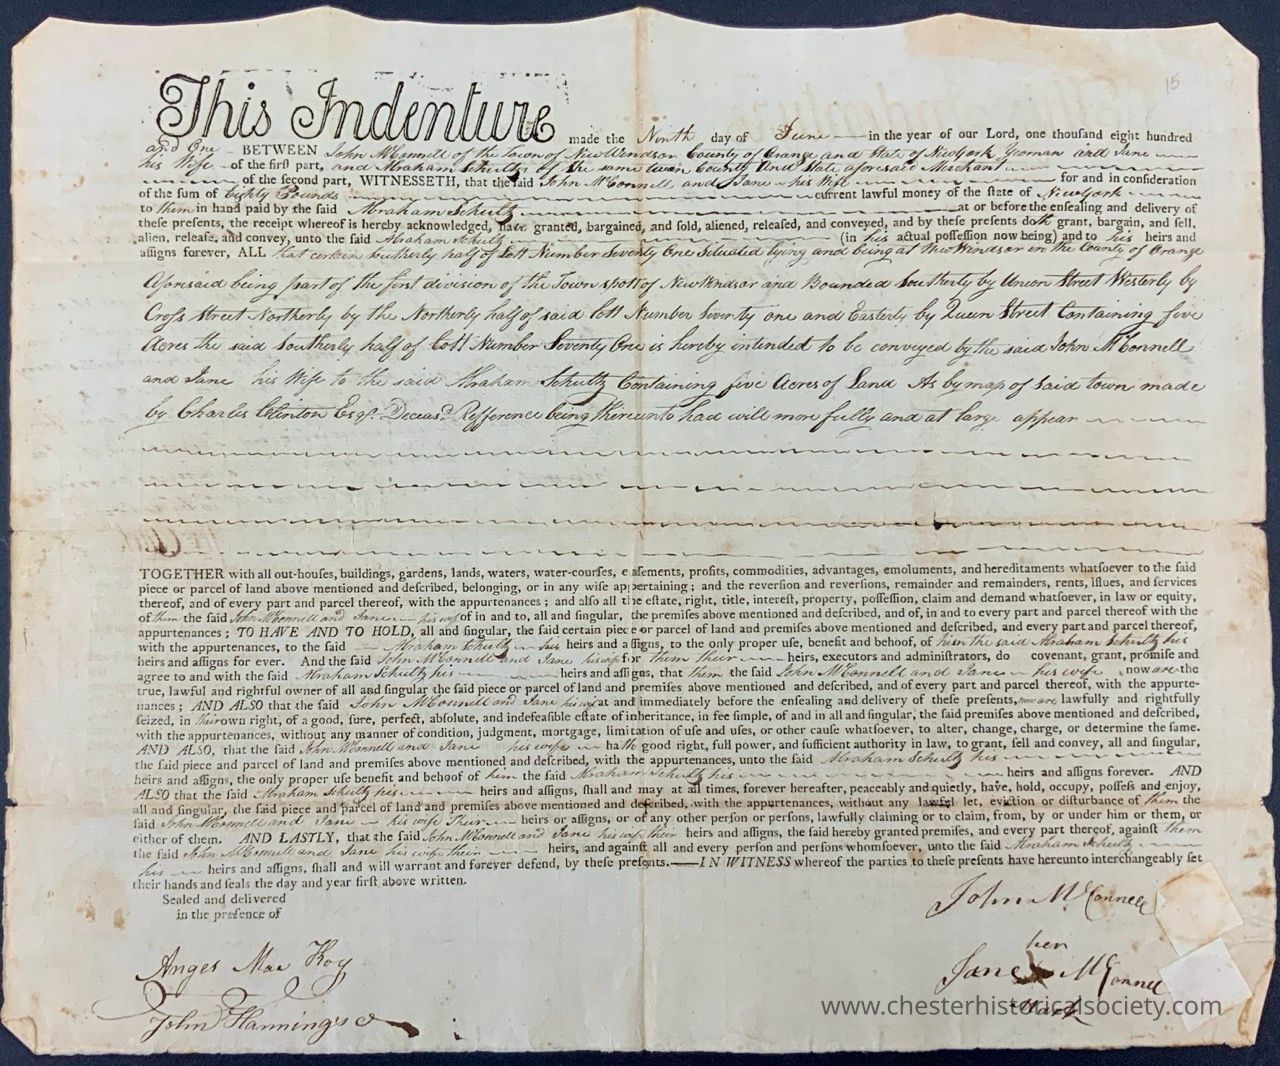 15
This Indenture made the Ninth day of June in the year of our Lord, one thousand eight hundred
and One BETWEEN John McConnell of the Town of New Windsor County of Orange and State of New York Yeoman and Jane
his Wife of the first part, and Abraham Schultz of the same town County and State aforesaid Merchant
of the second part, WITNESSETH, that the said John McConnell and Jane his Wife for and in consideration
of the sum of Eighty Pounds current lawful money of the state of New York
to them in hand paid by the said Abraham Schultz at or before the ensealing and delivery of
these presents, the receipt whereof is hereby acknowledged, have granted, bargained, and sold, aliened, released, and conveyed, and by these presents doth grant, bargain, and sell,
alien, release, and convey, unto the said Abraham Schultz (in his actual possession now being) and to his heirs and
assigns forever, ALL that certain Southerly half of Lott Number Seventy One Situated lying and being at New Windsor in the County of Orange
Aforesaid being part of the first division of the Town spott of New Windsor and Bounded Southerly by Union Street Westerly by
Cross Street Northerly by the Northerly half of said Lott Number Seventy one and Easterly by Queen Street Containing five
Acres the said Southerly half of Lott Number Seventy One is hereby intended to be conveyed by the said John McConnell
and Jane his Wife to the said Abraham Schultz Containing five Acres of Land As by map of Said town made
by Charles Clinton Esqr. Deceasd. Refference being thereunto had will more fully and at large appear
TOGETHER with all out-houses, buildings, gardens, lands, waters, water-courses, easements, profits, commodities, advantages, emoluments, and hereditaments whatsoever to the said
piece or parcel of land above mentioned and described, belonging, or in any wise appertaining; and the reversion and reversions, remainder and remainders, rents, issues, and services
thereof, and of every part and parcel thereof, with the appurtenances; and also all the estate, right, title, interest, property, possession, claim and demand whatsoever, in law or equity,
of them the said John McConnell and Jane his wife of in and to, all and singular, the premises above mentioned and described, and of, in and to every part and parcel thereof with the
appurtenances; TO HAVE AND TO HOLD, all and singular, the said certain piece or parcel of land and premises above mentioned and described, and every part and parcel thereof,
with the appurtenances, to the said Abraham Schultz his heirs and assigns, to the only proper use, benefit and behoof, of him the said Abraham Schultz his
heirs and assigns for ever. And the said John McConnell and Jane his wife for them their heirs, executors and administrators, do covenant, grant, promise and
agree to and with the said Abraham Schultz his heirs and assigns, that them the said John McConnell and Jane his wife now are the
true, lawful and rightful owner of all and singular the said piece or parcel of land and premises above mentioned and described, and of every part and parcel thereof, with the appurte-
nances; AND ALSO that the said John McConnell and Jane his wife at and immediately before the ensealing and delivery of these presents, now are lawfully and rightfully
seized, in their own right, of a good, sure, perfect, absolute, and indefeasible estate of inheritance, in fee simple, of and in all and singular, the said premises above mentioned and described,
with the appurtenances, without any manner of condition, judgment, mortgage, limitation of use and uses, or other cause whatsoever, to alter, change, charge, or determine the same.
AND ALSO, that the said John McConnell and Jane his wife hath good right, full power, and sufficient authority in law, to grant, sell and convey, all and singular,
the said piece and parcel of land and premises above mentioned and described, with the appurtenances, unto the said Abraham Schultz his
heirs and assigns, the only proper use benefit and behoof of him the said Abraham Schultz his heirs and assigns forever. AND
ALSO that the said Abraham Schultz his heirs and assigns, shall and may at all times, forever hereafter, peaceably and quietly, have, hold, occupy, possess and enjoy,
all and singular, the said piece and parcel of land and premises above mentioned and described, with the appurtenances, without any lawful let, eviction or disturbance of them the
said John McConnell and Jane his wife Their heirs or assigns, or of any other person or persons, lawfully claiming or to claim, from, by or under him or them, or
either of them. AND LASTLY, that the said John McConnell and Jane his wife their heirs and assigns, the said hereby granted premises, and every part thereof, against them
the said John McConnell and Jane his wife their heirs, and against all and every person and persons whomsoever, unto the said Abraham Schultz
his heirs and assigns, shall and will warrant and forever defend, by these presents.—IN WITNESS whereof the parties to these presents have hereunto interchangeably set
their hands and seals the day and year first above written.
Sealed and delivered
in the presence of
John McConnell
Anges Mac Koy
her
Jane McConnell
Mark
John Hannings
www.chesterhistoricalsociety.com